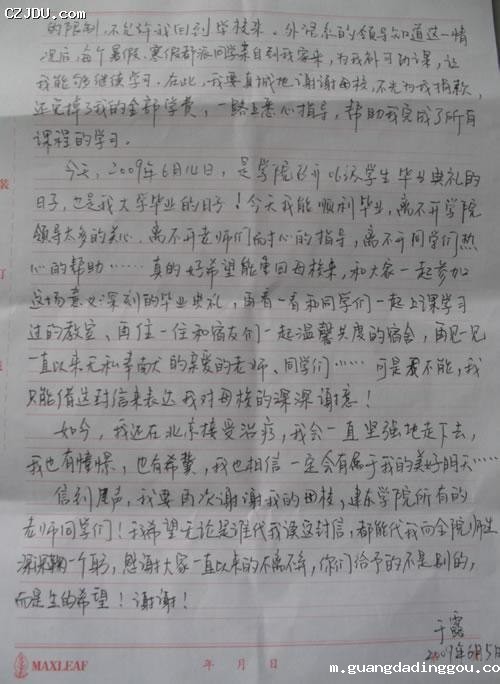 CZJDU.COM
的限制,不允许我回到学校来。外语系的领导知道这一情
况后,每个暑假、寒假都派同学来到我家来,为我补习功课,让
我能够继续学习。在此,我要真诚地谢谢母校,不光为我捐款,
还免掉了我的全部学费,一路上悉心指导,帮助我完成了所有
课程的学习。
今天,2009年6月14日,是学院召开06级学生毕业典礼的
日子,也是我大学毕业的日子!今天我能顺利毕业,离不开学院
领导太多的关心,离不开老师们耐心的指导,离不开同学们热
心的帮助……真的好希望能重回母校来,和大家一起参加
这场意义深刻的毕业典礼,再看一看和同学们一起上课学习
过的教室、再住一住和宿友们一起温馨共度的宿舍,再见一见
一直以来无私奉献的亲爱的老师、同学们……可是不能,我
只能借这封信来表达我对母校的深深谢意!
如今,我还在北京接受治疗,我会一直坚强地走下去,
我也有憧憬,也有希冀,我也相信一定会有属于我的美好明天……
信到尾声,我要再次谢谢我的母校,建东学院所有的
老师同学们!我希望无论是谁代我读这封信,都能代我向全院师生
深深鞠一个躬,感谢大家一直以来的不离不弃,你们给予的不是别的,
而是生的希望!谢谢!
于露
2009年6月5日
MAXLEAF 年 月 日
m.guangdadinggou.com
装
订